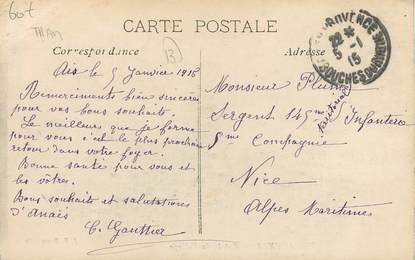 60t
CARTE POSTALE
Correspondance
Adresse
Aix le 5 Janvier 1916
Remerciments bien sincères
pour vos bons souhaits.
Le meilleurs que je forme
pour vous c'est le plus prochain
retour dans votre foyer.
Bonne santé pour vous et
les vôtres.
Bons souhaits et salutations
d'Anaïs
C. Gauthier
Monsieur
Sergent 145me territorial Infanterie
5me Compagnie
Nice
Alpes Maritimes
PROVENCE
22 *
5 - 1
15
BOUCHES DU RHONE